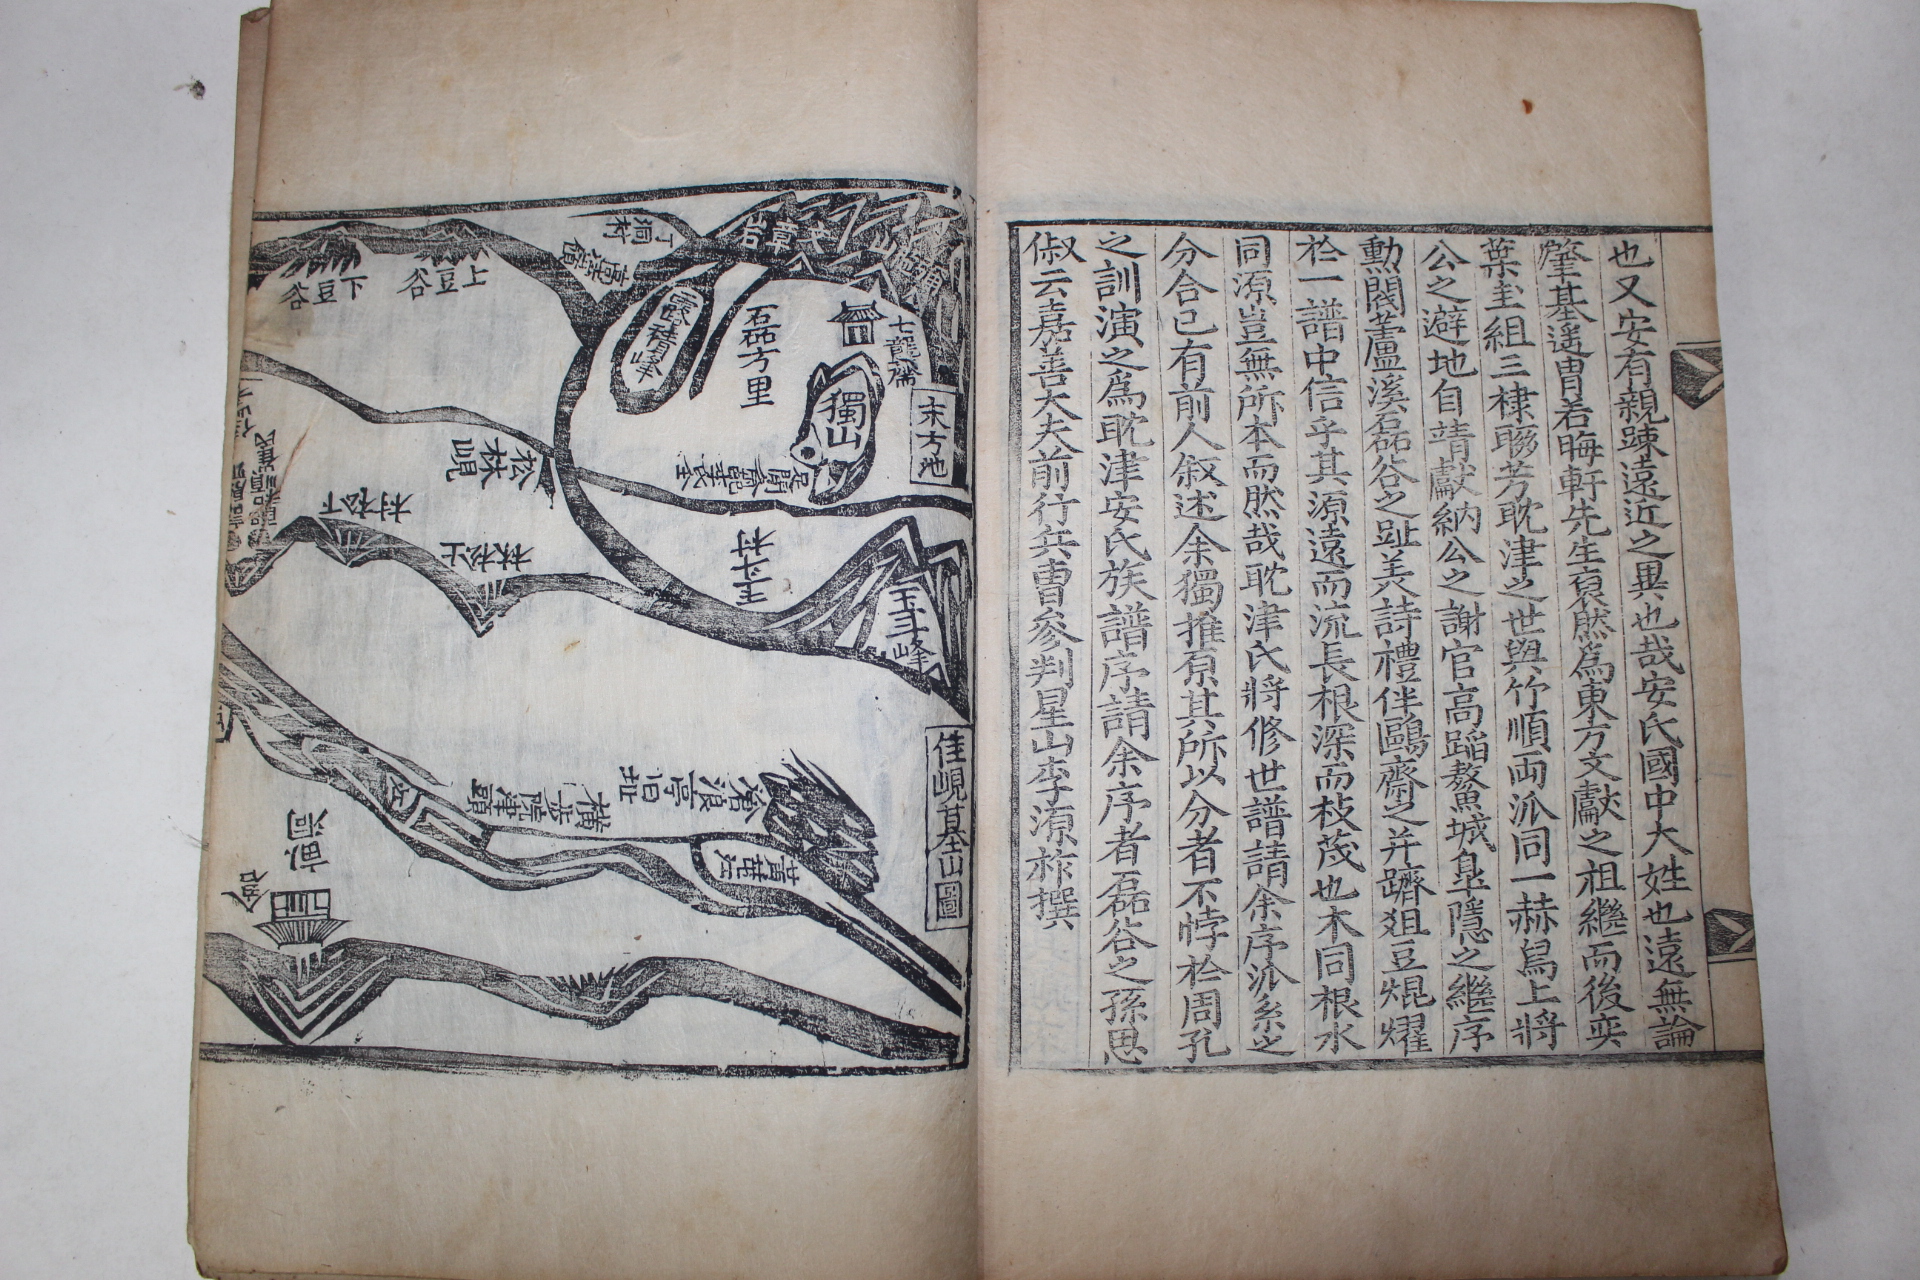 也又安有親踈遠近之異也哉安氏國中大姓也遠無論
肇基遙胄若晦軒先生裒然爲東方文獻之祖繼而後奕
葉圭組三棣聯芳耽津之世與竹順両派同一赫舃上將
公之避地自靖獻納公之謝官高蹈鰲城皐隱之繼序
勳閥蘆溪磊谷之趾美詩禮伴鷗齋之并躋俎豆焜燿
於一譜中信乎其源遠而流長根深而枝茂也木同根水
同源豈無所本而然哉耽津氏將修世譜請余序派系之
分合已有前人叙述余獨推原其所以分者不悖於周孔
之訓演之爲耽津安氏族譜序請余序者磊谷之孫思
俶云嘉善大夫前行兵曹參判星山李源祚撰
末方地
佳峴基山圖
七龍齋
獨山
石磊方里
霞積峰
文章岩
玉斗村
玉斗峰
松林峴
上豆谷
下豆谷
上松林
下松村
滄浪亭旧址
黃苞江
江
畝洞